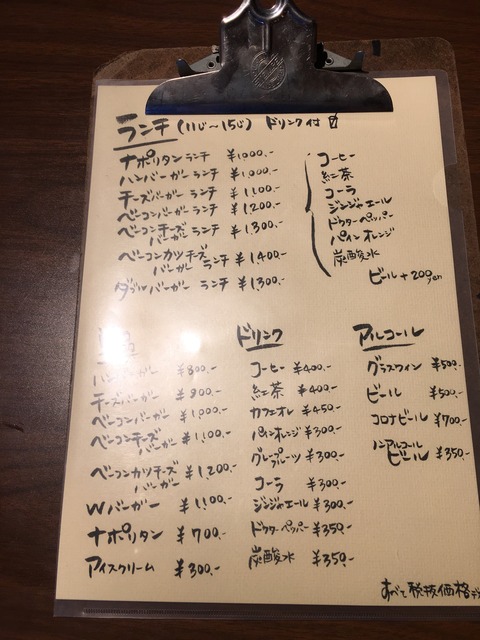 ランチ (11じ~15じ) ドリンク付
ナポリタン ランチ ¥1000.-
ハンバーガー ランチ ¥1,000.-
チーズバーガー ランチ ¥1,100-
ベーコンバーガー ランチ ¥1,200-
ベーコンチーズバーガー ランチ ¥1,300-
ベーコンカツチーズバーガー ランチ ¥1400-
ダブルバーガー ランチ ¥1,300-
コーヒー
紅茶
コーラ
ジンジャエール
ドクターペッパー
パインオレンジ
炭酸水
ビール +200yen
ハンバーガー ¥800.-
チーズバーガー ¥900.-
ベーコンバーガー ¥1,000-
ベーコンチーズバーガー ¥1,100-
ベーコンカツチーズバーガー ¥1,200-
Wバーガー ¥1,100-
ナポリタン ¥700.-
アイスクリーム ¥300.-
ドリンク
コーヒー ¥400.-
紅茶 ¥400.-
カフェオレ ¥450-
パインオレンジ ¥300.-
グレープフルーツ ¥300.-
コーラ ¥300.-
ジンジャエール ¥300.-
ドクターペッパー ¥350-
炭酸水 ¥350-
アルコール
グラスワイン ¥500-
ビール ¥500.-
コロナビール ¥700-
ノンアルコールビール ¥350-
すべて税抜価格デス